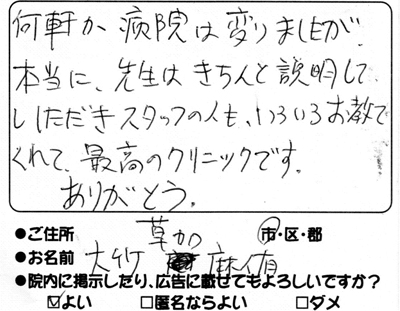 何軒か、病院は変りましたが、
本当に、先生はきちんと説明して
いただきスタッフの人も、いろいろお教て
くれて、最高のクリニックです。
ありがとう。
●ご住所 草加 市・区・郡
●お名前 大竹 麻侑
●院内に掲示したり、広告に載せてもよろしいですか?
☑よい □匿名ならよい □ダメ